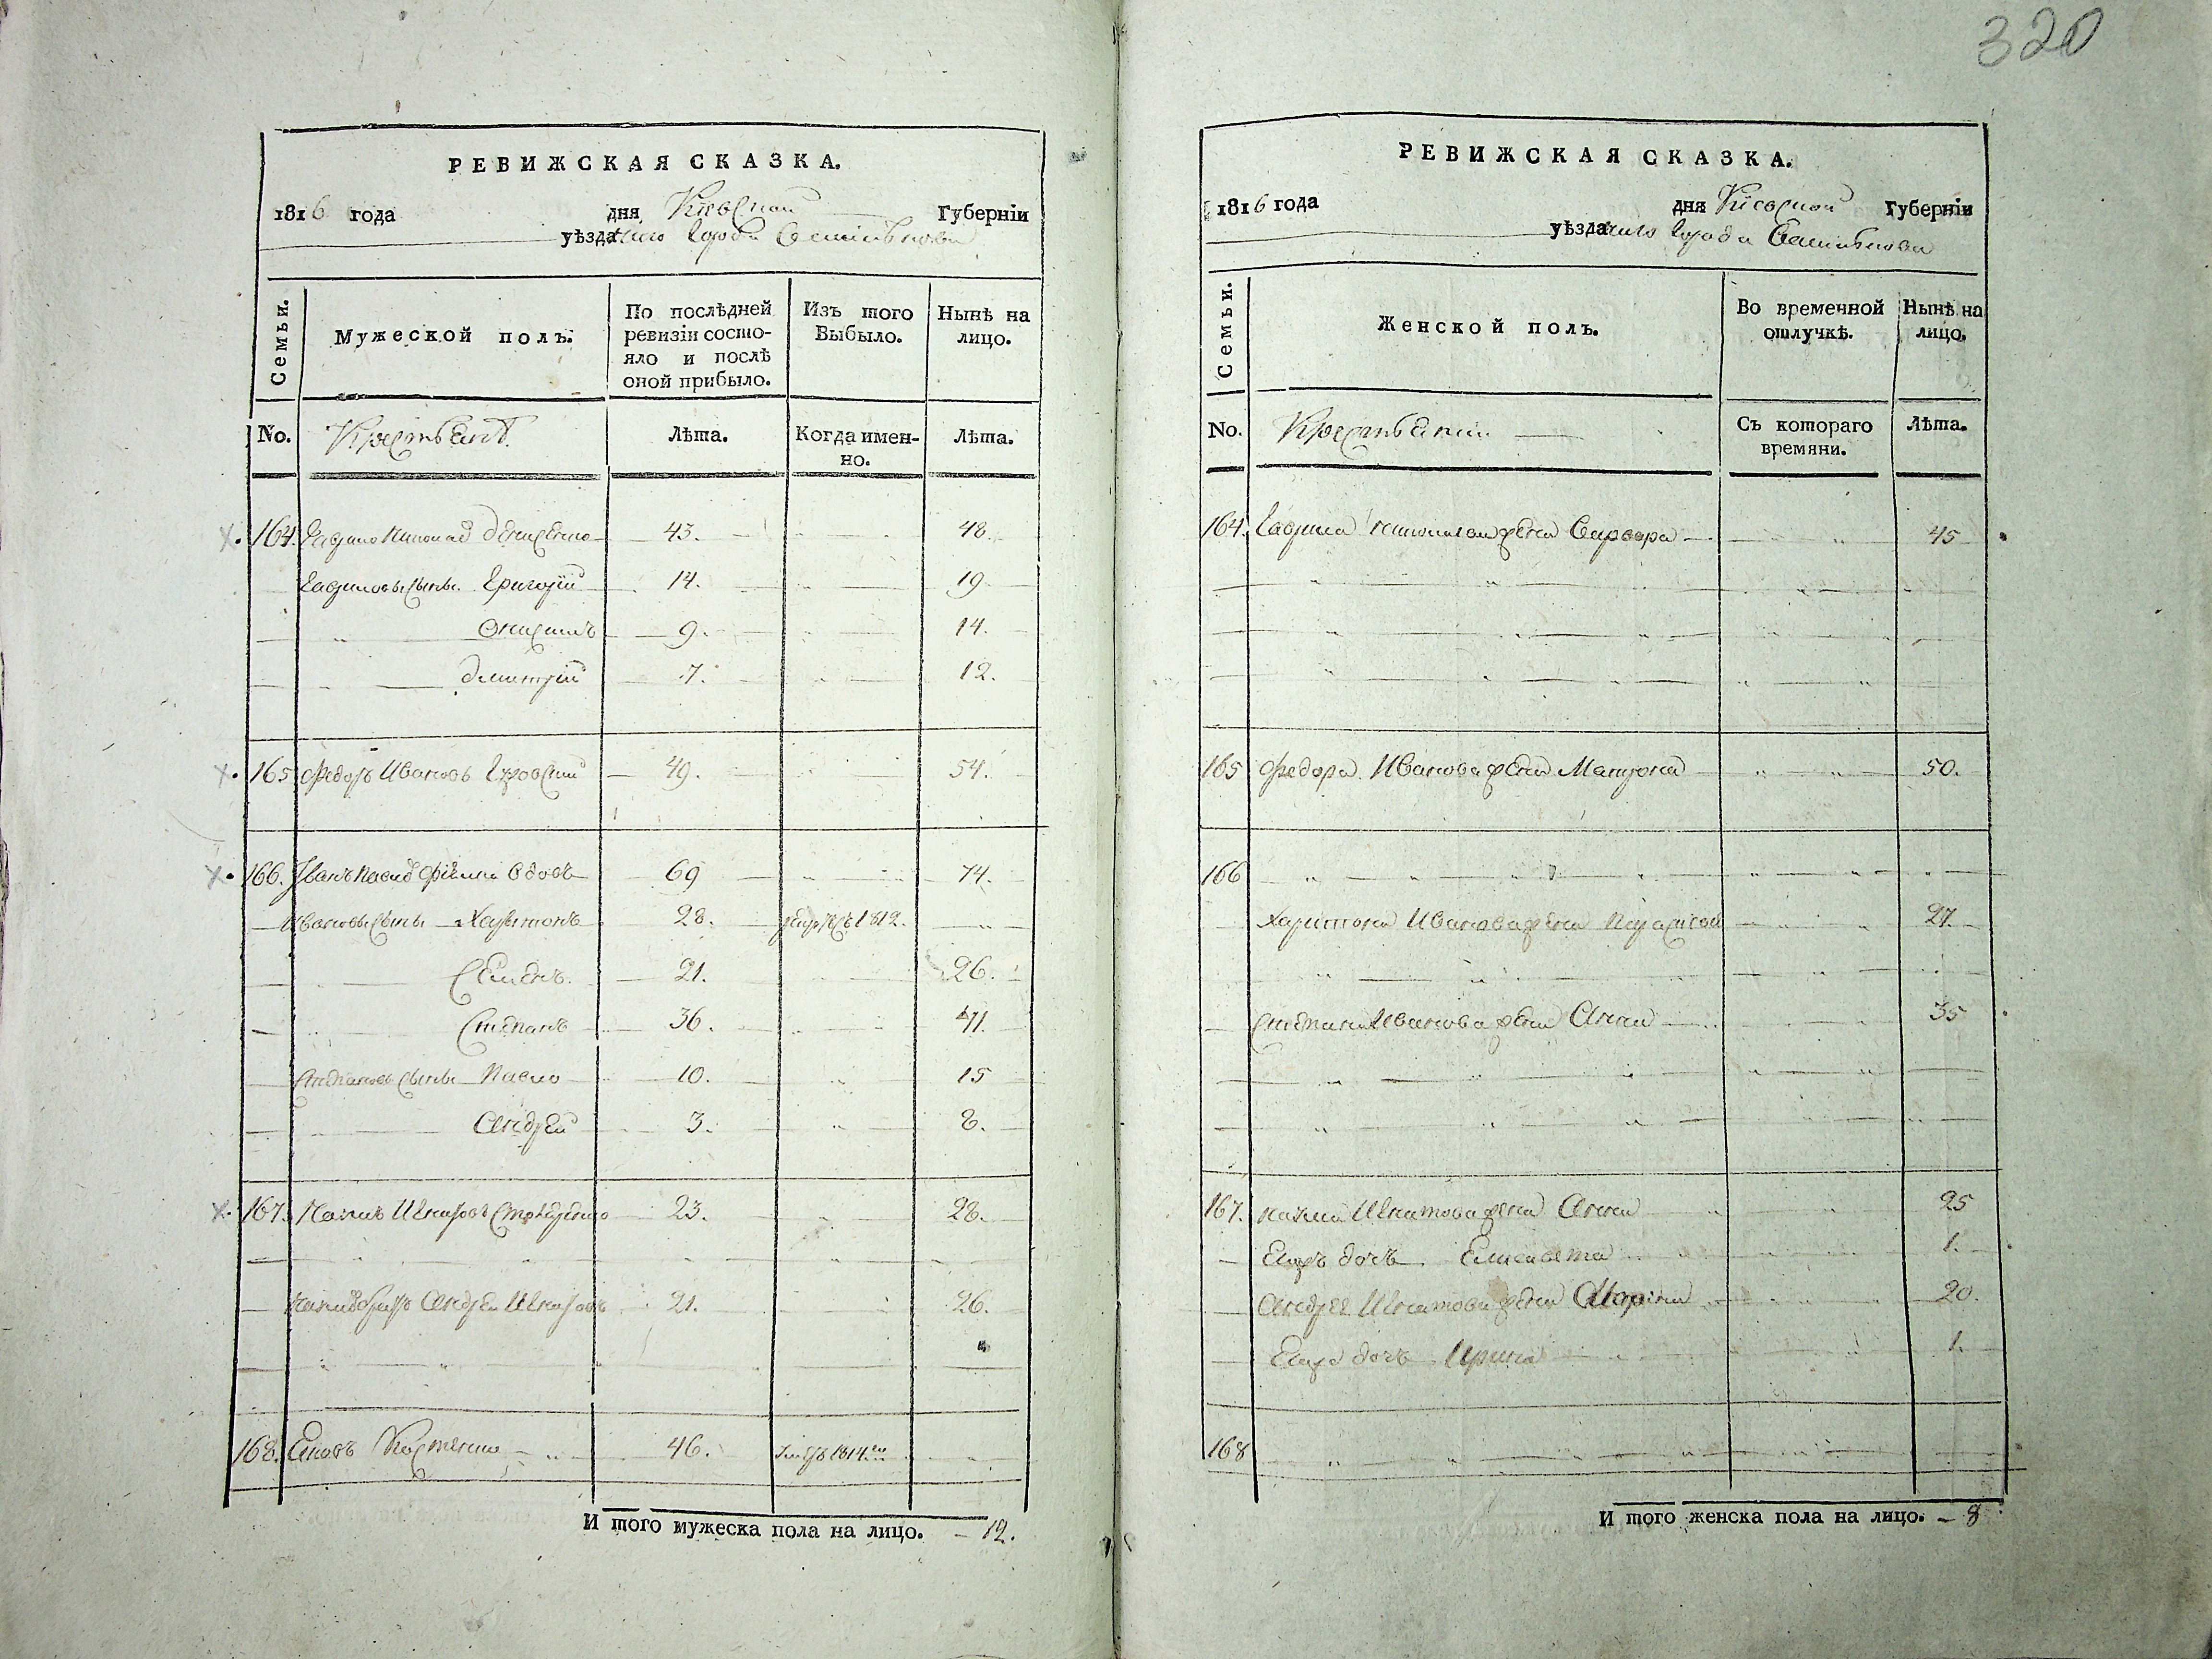 320
РЕВИЖСКАЯ СКАЗКА.
1816 года дня Киевской Губерніи
уѣзда города
Семьи.
Мужеской полъ.
По послѣдней ревизіи состо-
яло и послѣ
оной прибыло.
Изъ того
Выбыло.
Нынѣ на
лицо.
No. Крестьянъ Лѣта. Когда имен-
но. Лѣта.
164. 43. 48.
сынъ Григорій 14. 19
Онисимъ 9. 14.
Дмитрій 7. 12.
165 Федоръ Ивановъ 49. 54.
166. Иванъ вдовъ 69 74.
Ивановы сыны Харитонъ 28. 1812.
Семенъ. 21. 26.
Степанъ 36. 41.
Степановы сыны Павло 10. 15
Андрей 3. 8.
167. 23. 28.
братъ Андрей 21. 26.
168. Яковъ Костенко 46. 1814
И того мужеска пола на лицо. 12.
РЕВИЖСКАЯ СКАЗКА.
1816 года дня Киевской Губерніи
уѣзда города
Семьи.
Женской полъ.
Во временной
отлучкѣ.
Нынѣ на
лицо.
No. Крестьянки Съ котораго
времяни. Лѣта.
164. Гаврила жена Варвара 45
165 Федора Иванова жена Матрона 50.
166
Харитона Иванова жена 27.
Степана Иванова жена Анна 35
167. Игнатова жена Анна 25
дочь Елисавета 1.
Андрея Игнатова жена Марина 20.
дочь Ирина 1.
168
И того женска пола на лицо. 8